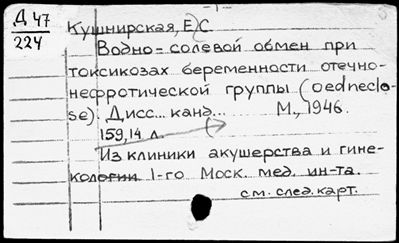 - 1 -
Д 47
224
Кушнирская, Е.С.
Водно-солевой обмен при
токсикозах беременности отечно-
нефротической группы (oedneclo-
se). Дисс... канд... М., 1946.
159,14 л.
Из клиники акушерства и гине-
кологии 1-го Моск. мед. ин-та.
см. след. карт.